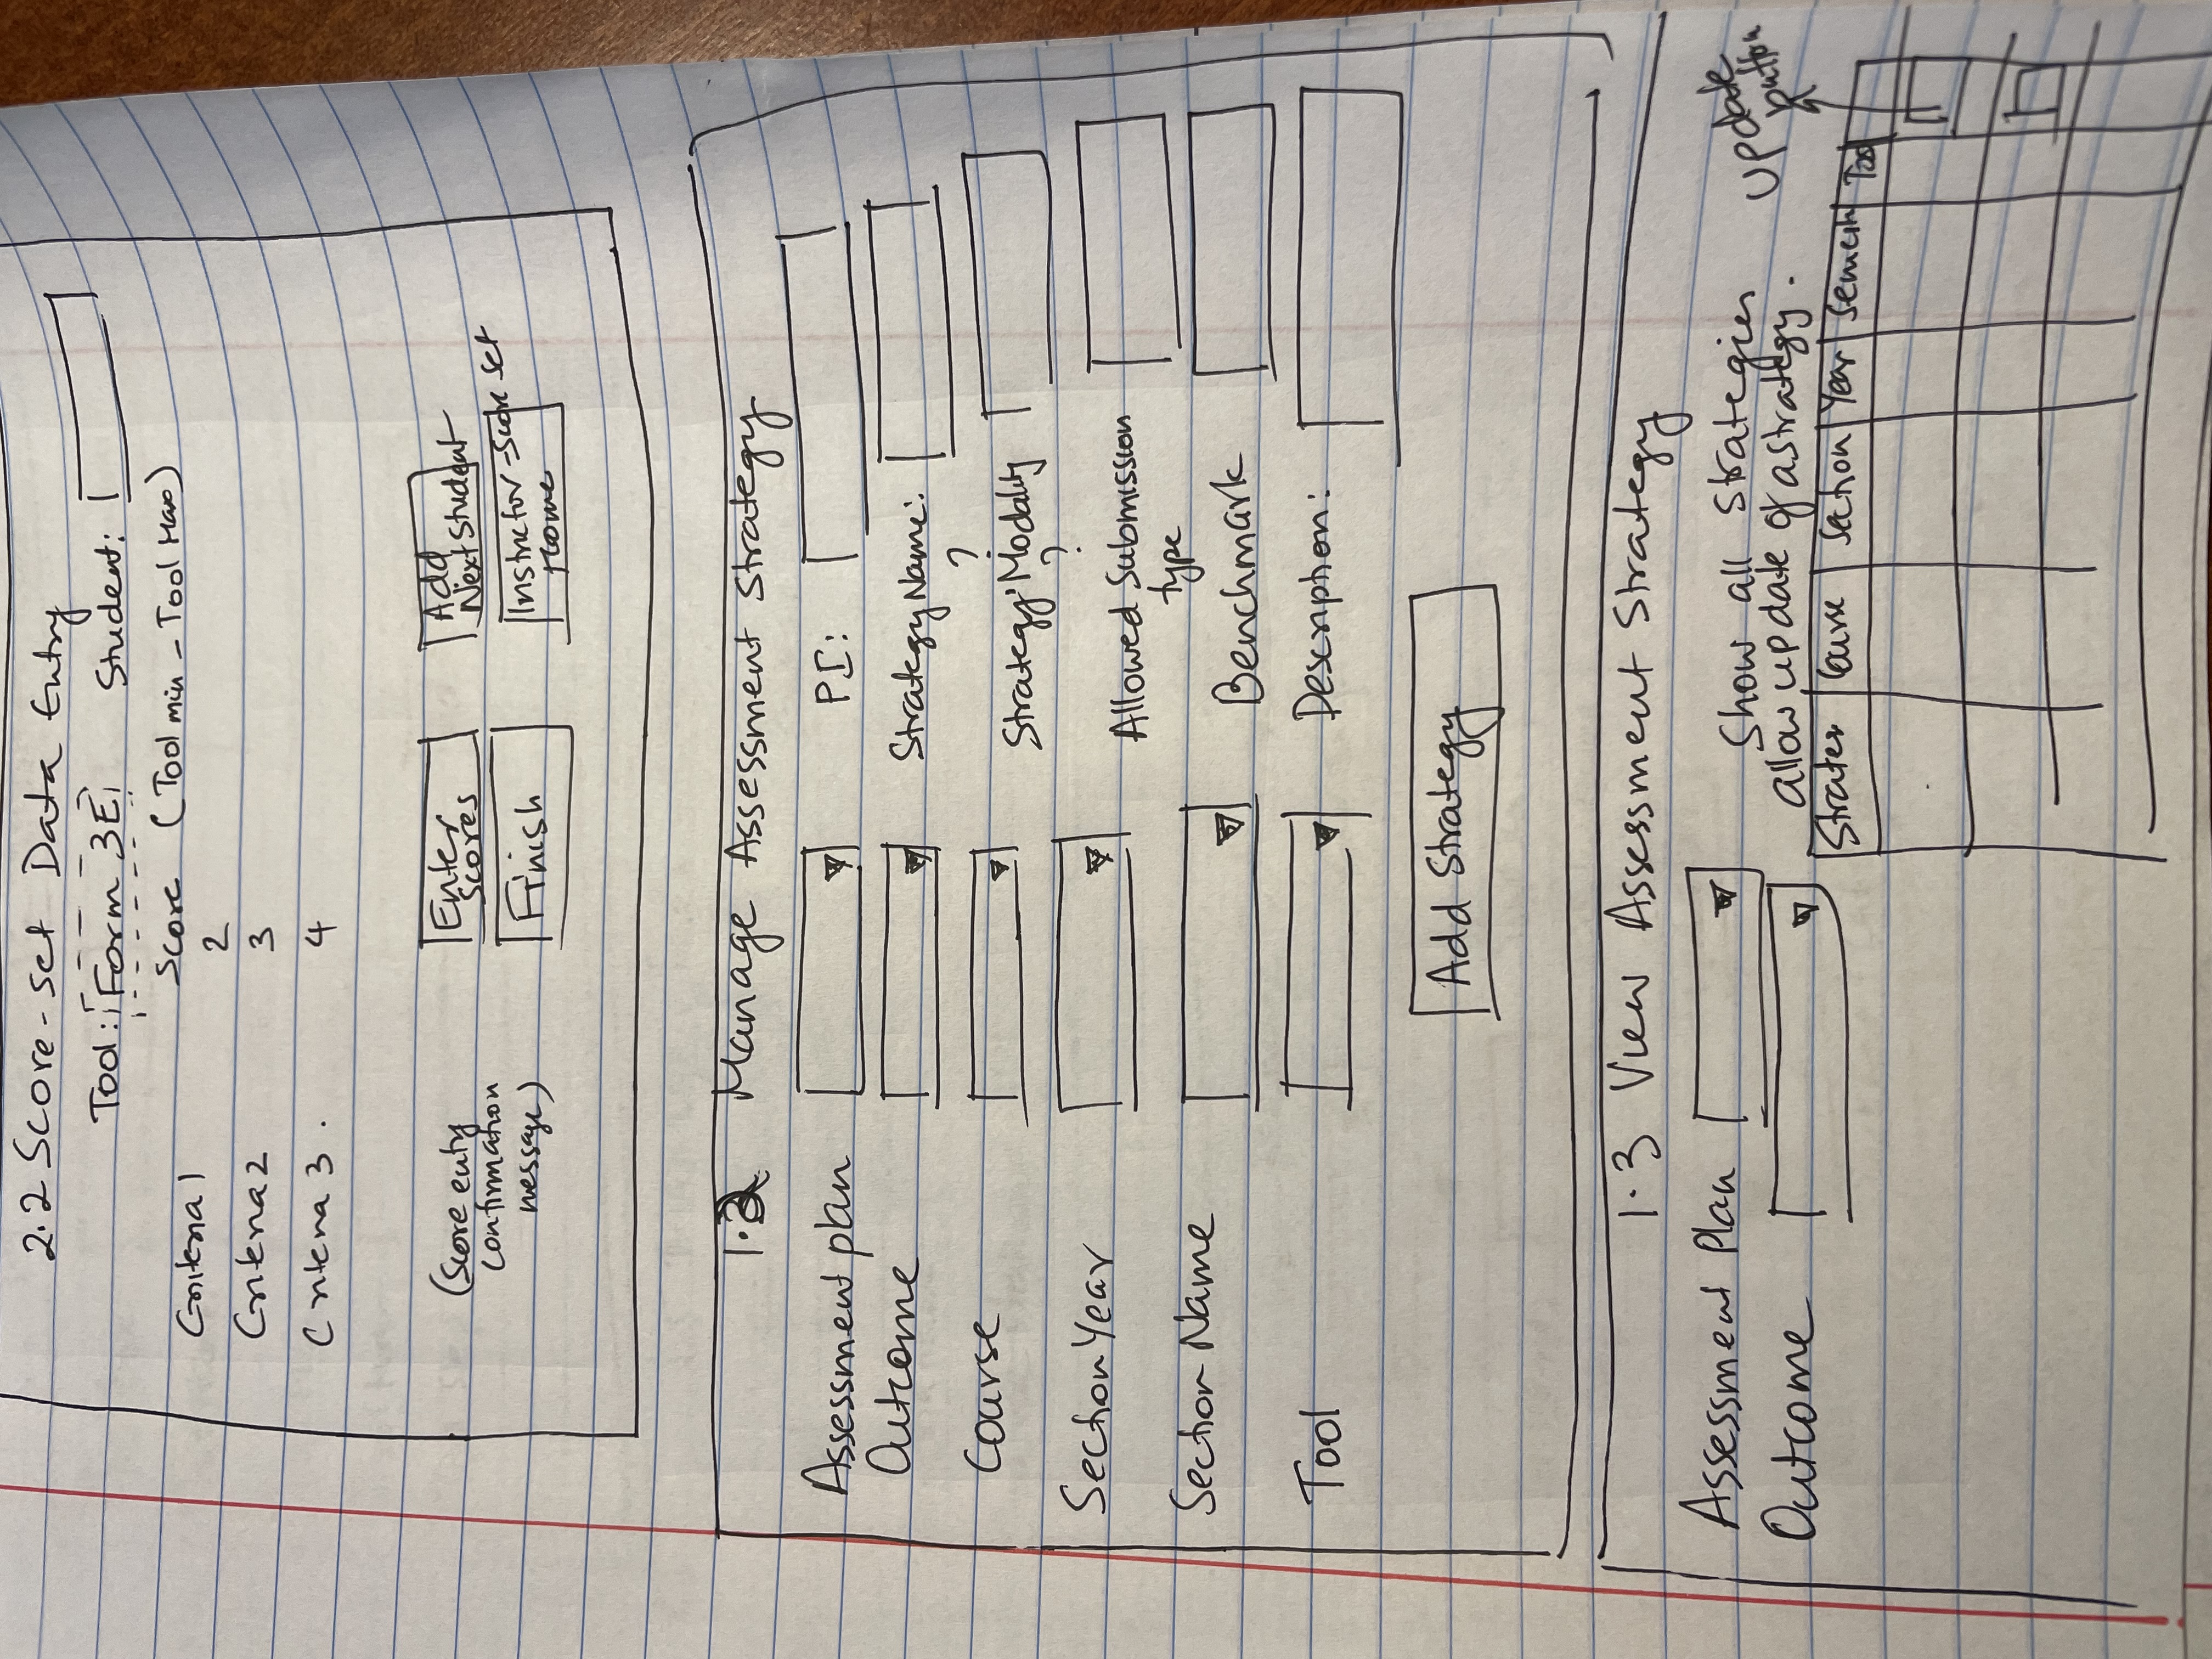 2.2 Score-set Data Entry
Tool: Form 3E Student:
Score (Tool min - Tool Max)
Criteria 1 2
Criteria 2 3
Criteria 3. 4
(Score entry confirmation message)
Enter Scores
Add Next Student
Finish
Instructor-score set
1.2 Manage Assessment Strategy
Assessment plan PI:
Outcome Strategy Name:
?
Course Strategy Modality
?
Section Year Allowed Submission type
Section Name Benchmark
Tool Description:
Add Strategy
1.3 View Assessment Strategy
Assessment Plan
Outcome
Show all strategies
allow update of a strategy.
update button
Course Section Year Tool